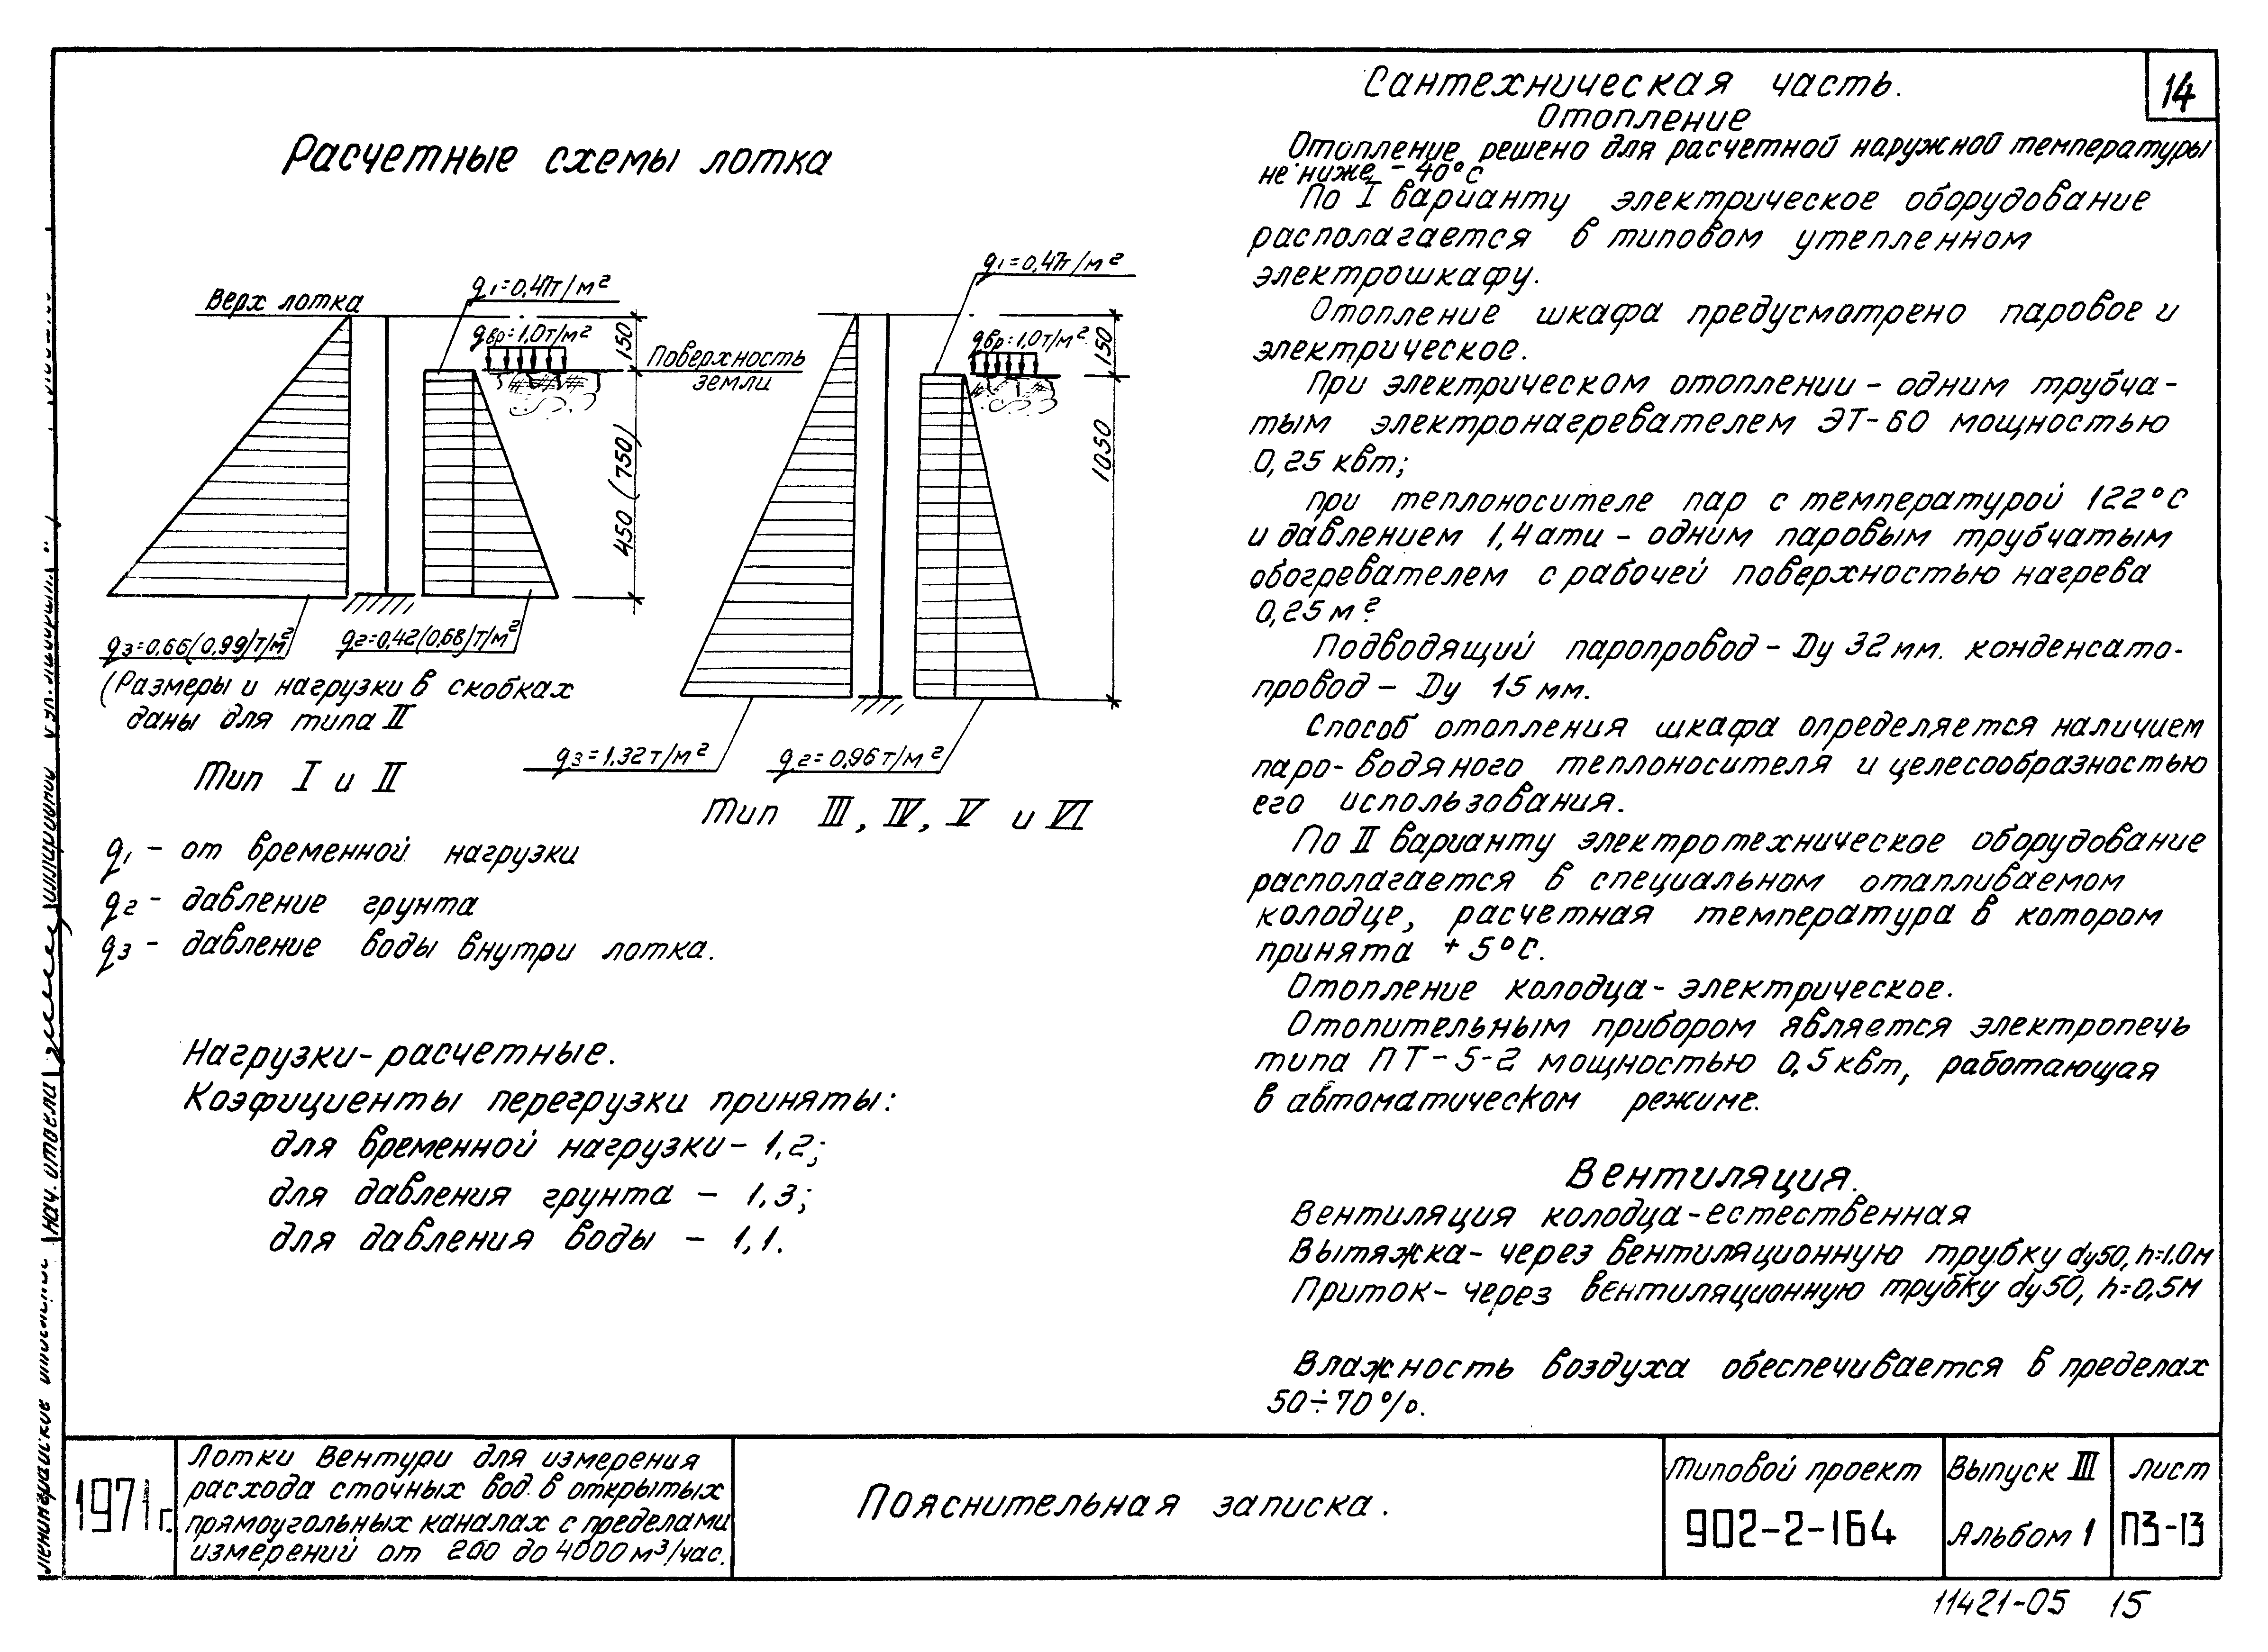 14
Расчетные схемы лотка
Верх лотка
q1=0,47т/м2
qвр=1,0т/м2
150
Поверхность
земли
450 (750)
q3=0,66(0,99)т/м2
q2=0,42(0,68)т/м2
(Размеры и нагрузки в скобках
даны для типа II
Тип I и II
q1=0,47т/м2
qвр=1,0т/м2
150
1050
q3=1,32т/м2
q2=0,96т/м2
Тип III, IV, V и VI
q1 - от временной нагрузки
q2 - давление грунта
q3 - давление воды внутри лотка.
Нагрузки-расчетные.
Коэфициенты перегрузки приняты:
для временной нагрузки - 1,2;
для давления грунта - 1,3;
для давления воды - 1,1.
Сантехническая часть.
Отопление
Отопление решено для расчетной наружной температуры
не ниже - 40°С
По I варианту электрическое оборудование
располагается в типовом утепленном
электрошкафу.
Отопление шкафа предусмотрено паровое и
электрическое.
При электрическом отоплении - одним трубча-
тым электронагревателем ЭТ-60 мощностью
0,25 квт;
при теплоносителе пар с температурой 122°С
и давлением 1,4 ати - одним паровым трубчатым
обогревателем с рабочей поверхностью нагрева
0,25 м2
Подводящий паропровод - Ду 32 мм. конденсато-
провод - Ду 15 мм.
Способ отопления шкафа определяется наличием
паро-водяного теплоносителя и целесообразностью
его использования.
По II варианту электротехническое оборудование
располагается в специальном отапливаемом
колодце, расчетная температура в котором
принята + 5°С.
Отопление колодца - электрическое.
Отопительным прибором является электропечь
типа ПТ-5-2 мощностью 0,5 квт, работающая
в автоматическом режиме.
Вентиляция.
Вентиляция колодца - естественная
Вытяжка - через вентиляционную трубку dу50, h=1.0м
Приток - через вентиляционную трубку dу50, h=0,5м
Влажность воздуха обеспечивается в пределах
50÷70%.
1971г.
Лотки Вентури для измерения
расхода сточных вод в открытых
прямоугольных каналах с пределами
измерений от 200 до 4000 м3/час.
Пояснительная записка.
Типовой проект
902-2-164
Выпуск III
Альбом 1
Лист
ПЗ-13
11421-05 15